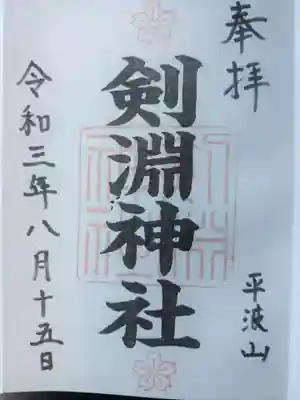 奉拝
平波山
剣淵神社
令和三年八月十五日